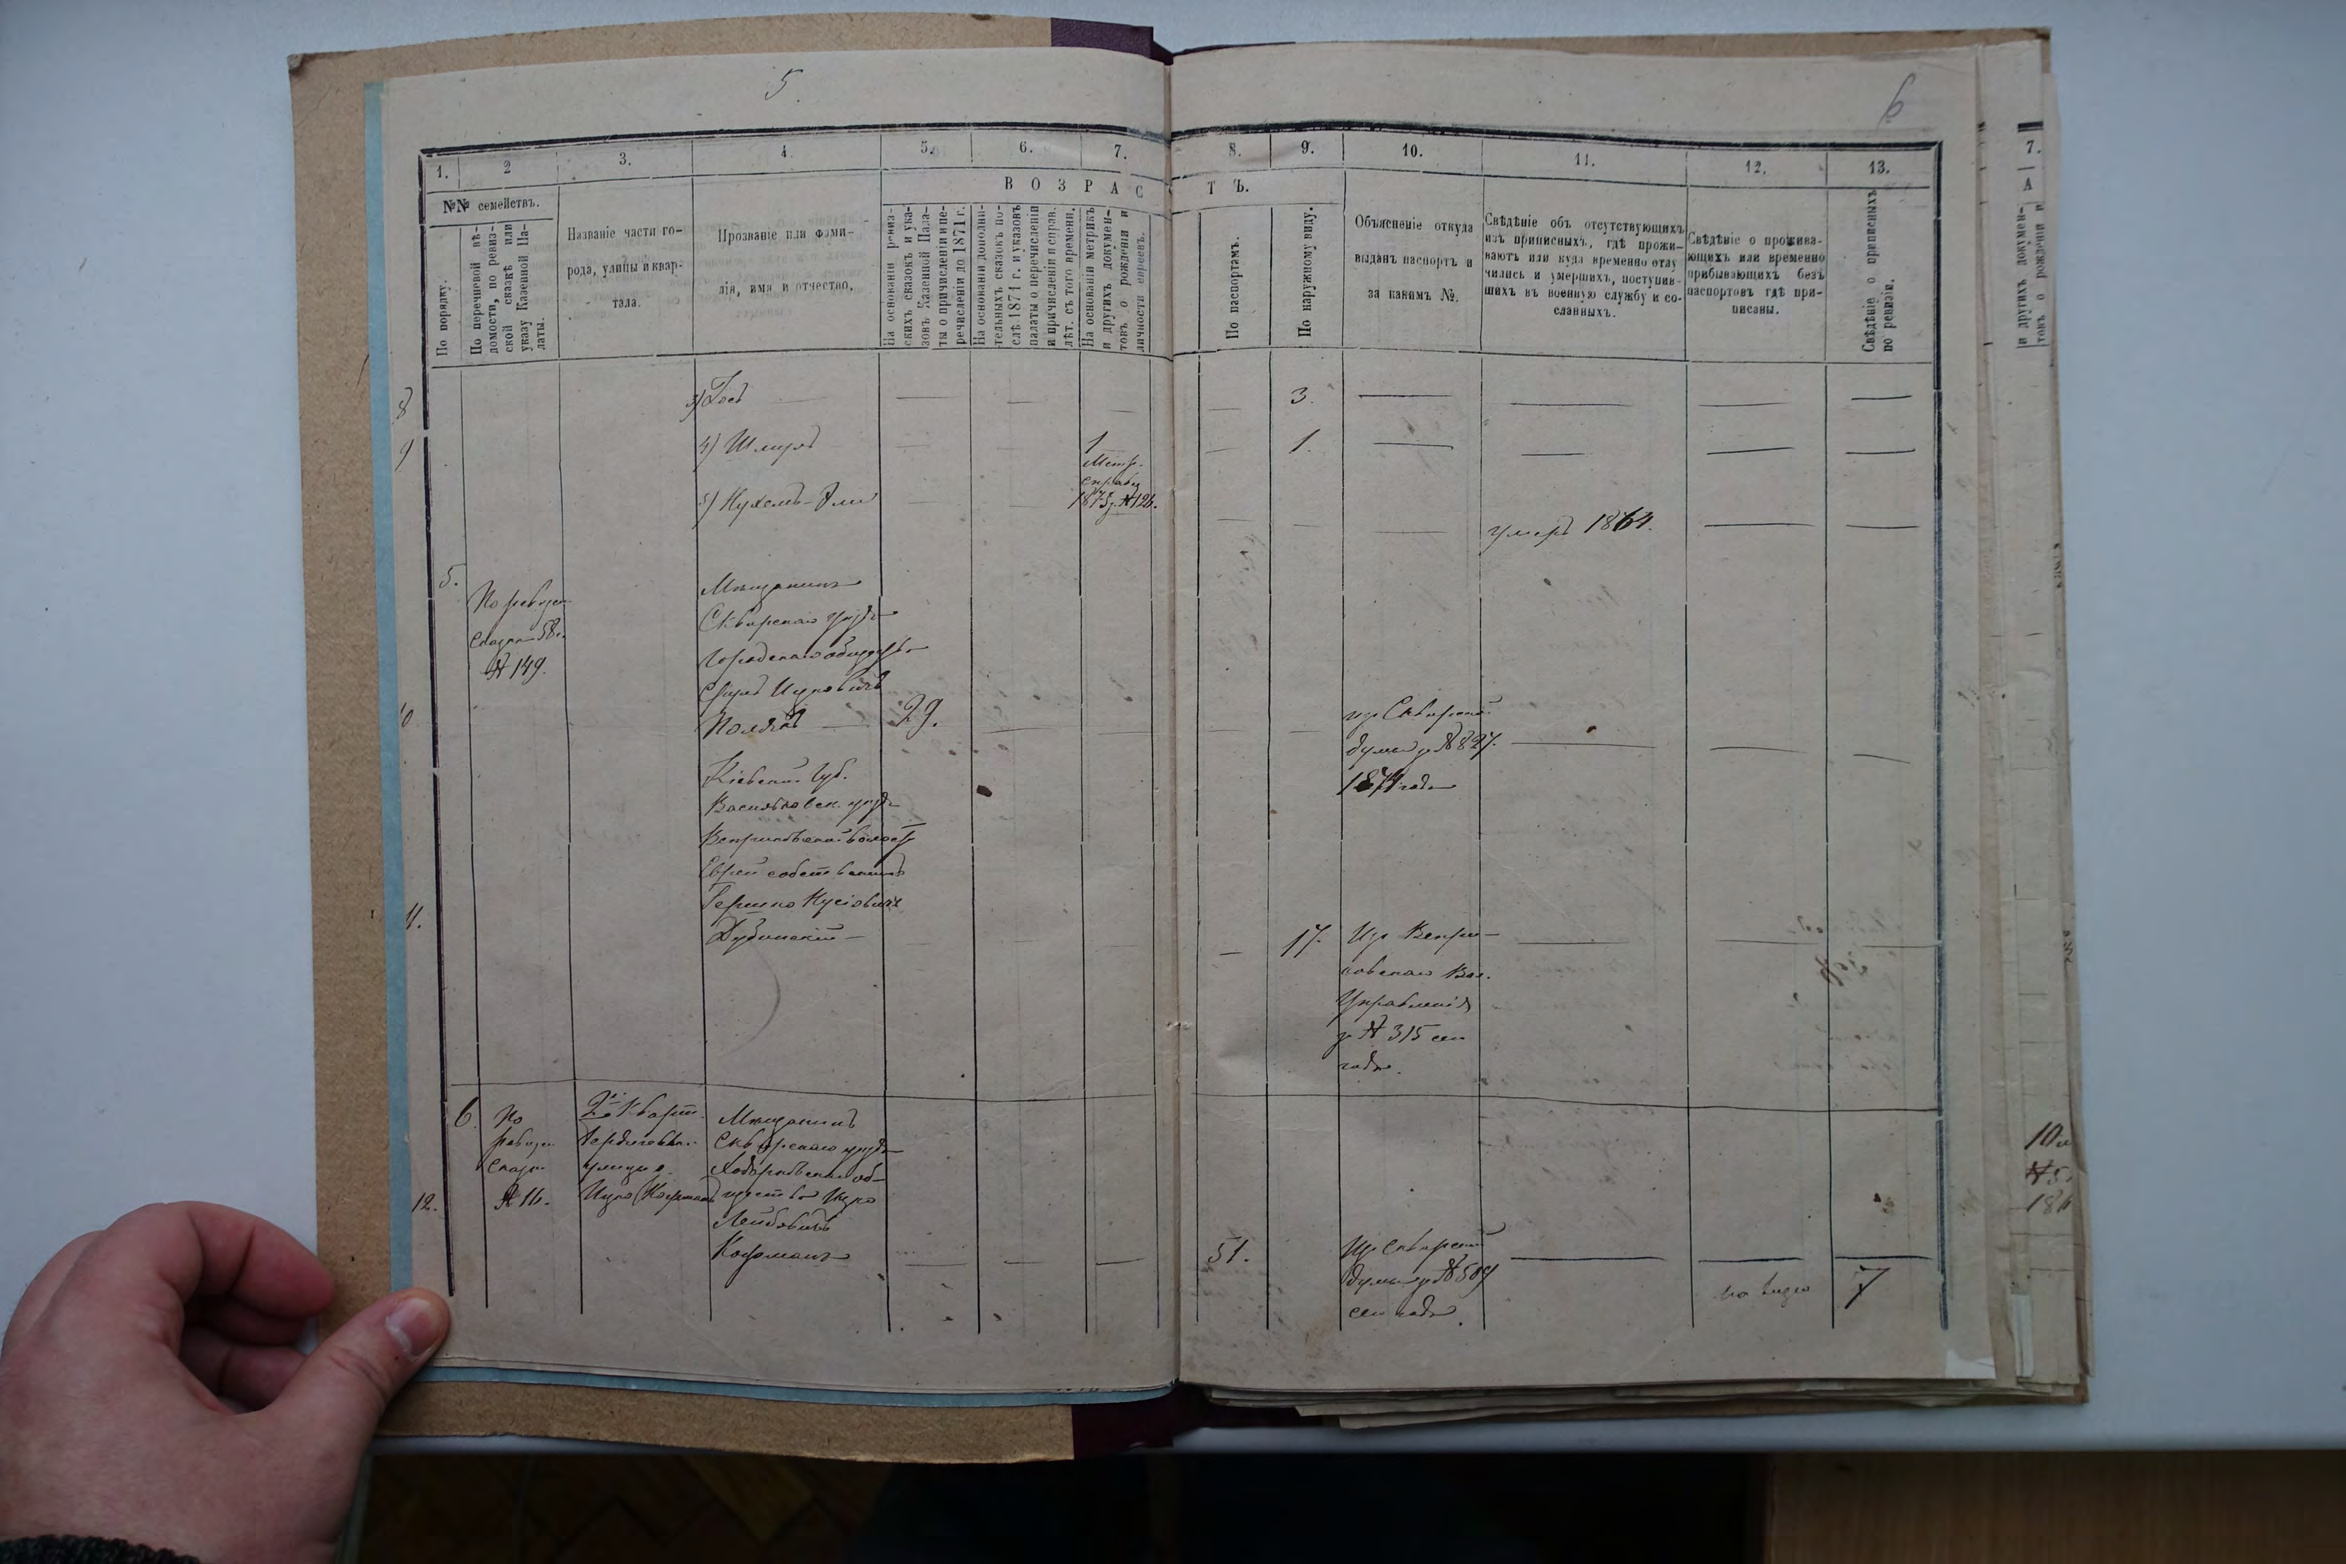 5
6
1. 2 3. 4. 5. 6. 7. 8. 9. 10. 11. 12. 13.
В О З Р А С Т Ъ.
№№ семействъ.
По порядку.
По перечневой вѣ-
домости, по ревиз-
ской сказкѣ или
указу Казенной Па-
латы.
Названіе части го-
рода, улицы и квар-
тала.
Прозваніе или фами-
лія, имя и отчество.
На основаніи ревиз-
скихъ сказокъ и ука-
зовъ Казенной Пала-
ты о причисленіи и пе-
речисленіи до 1871 г.
На основаніи дополни-
тельныхъ сказокъ по-
слѣ 1871 г. и указовъ
палаты о перечисленіи
и причисленіи и справ.
лѣт. съ того времени.
На основаніи метрикъ
и другихъ докумен-
товъ о рожденіи и
личности евреевъ.
По паспортамъ.
По наружному виду.
Объясненіе откуда
выданъ паспортъ и
за какимъ №.
Свѣдѣніе объ отсутствующихъ
изъ приписныхъ, гдѣ прожи-
ваютъ или куда временно отлу
чились и умершихъ, поступив-
шихъ въ военную службу и со-
сланныхъ.
Свѣдѣніе о прожива-
ющихъ или временно
прибывающихъ безъ
паспортовъ гдѣ при-
писаны.
Свѣдѣніе о приписныхъ
по ревизіи.
7.
А
и другихъ докумен-
товъ о рожденіи и
8
3)
3.
9
4) Шмуль
1
Метр.
справ.
1873 г. № 126.
1.
5) Нухемъ-Эли
умеръ 1864.
5.
По ревизс.
Сказкѣ 58 г.
№ 149.
Мѣщанинъ
Сквирскаго уѣзда
Городскаго общества
Сруль Ицковичъ
10
Полякъ
29.
изъ Сквирской
думы за № 827.
1874 года
Кіевской Губ.
Васильковск. уѣзда
Веприковской волости
Еврей собственникъ
Гершко Нусіовичъ
11.
Дубинскій
17.
Изъ Вепри-
ковскаго Вол.
Управленія
за № 315 сего
года.
6.
По
ревизс.
Сказк.
№ 16.
2й Кварт.
Бердичевская
улица д.
Ицко Кофманъ
Мѣщанинъ
Сквирскаго уѣзда
Ходорковскаго об-
щества Ицко
Лейбовичъ
Кофманъ
12.
51.
Изъ Сквирской
думы за № 509
сего года.
на лицо
7
10
№ 5